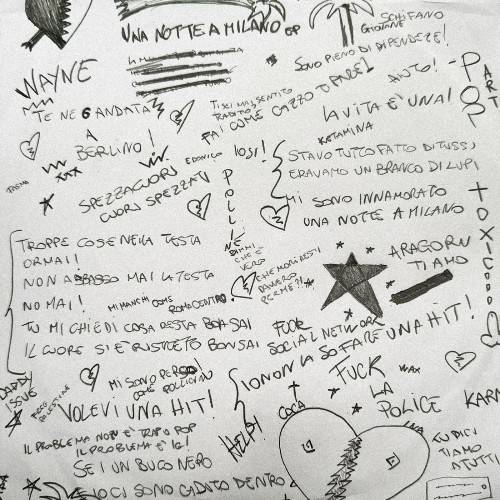 UNA NOTTE A MILANO EP
SCHIFANO
GIOVANE
SONO PIENO DI DIPENDENZE!
WAYNE
AIUTO!
POP ART
TE NE 6 ANDATA
A
BERLINO!
TI SEI MAI SENTITO
TRADITO?
FAI COME CAZZO TI PARE!
LA VITA È UNA!
KETAMINA
XXX
EDONICO
IO SI!
STAVO TUTTO FATTO DI TUSSI,
ERAVAMO UN BRANCO DI LUPI
SPEZZACUORI
CUORI SPEZZATI
POLLINE
MI SONO INNAMORATO
UNA NOTTE A MILANO
TOXIC
TROPPE COSE NELLA TESTA
ORMAI!
NON ABBASSO MAI LA TESTA
NO MAI!
MI MANCHI COME
ROMA CENTRO
DIMMI
CHE È
VERO
CHE MORIRESTI
DAVVERO
PER ME?!
ARAGORN
TI AMO
TU MI CHIEDI COSA RESTA BONSAI
IL CUORE SI È RISTRETTO BONSAI
FUCK
SOCIAL NETWORK
IO NON LA SO FARE UNA HIT!
DADDY
ISSUE
MI SONO PERSO
COME POLLICINO
VOLEVI UNA HIT!
FUCK
LA
POLICE
WAX
COCA
HELP!
KARM
IL PROBLEMA NON È TRAP O POP
IL PROBLEMA È IG!
SEI UN BUCO NERO
CI SONO CADUTO DENTRO
LUDICI
TIAMO
A TUTTI